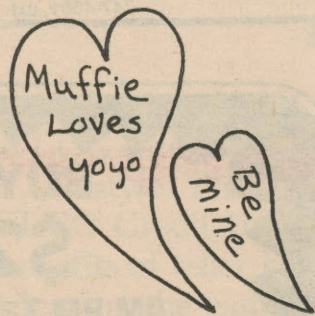 Muffie
Loves
yoyo
Be
mine